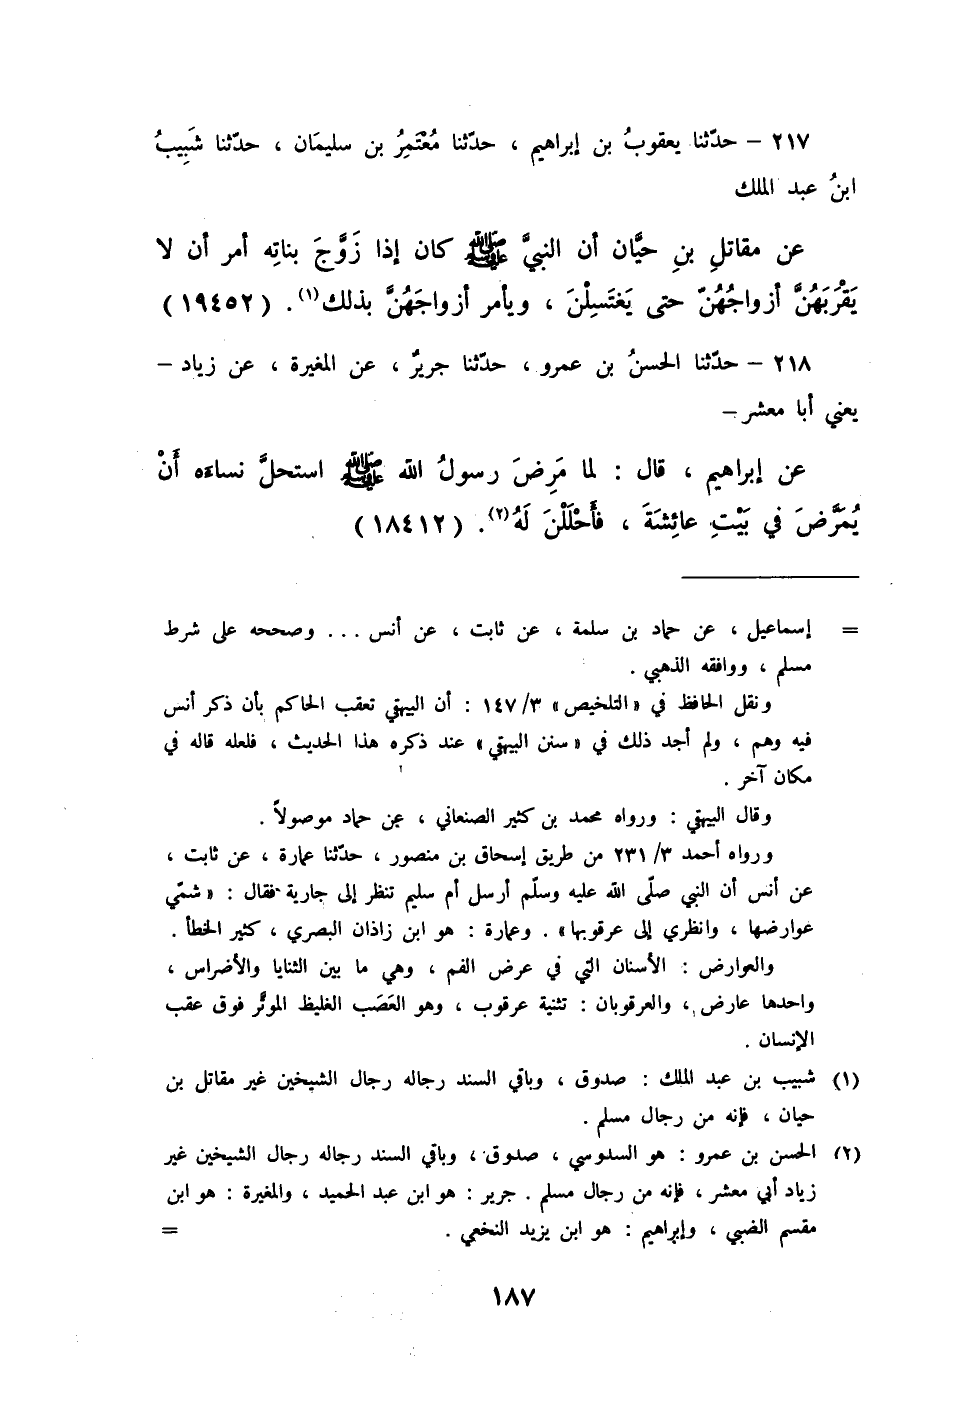 ٢١٧ – حدّثنا يعقوبُ بن إبراهيم ، حدّثنا مُعْتَمِرُ بن سليمَان ، حدّثنا شَبِيبُ
ابنُ عبد الملك
عن مقاتلِ بنِ حيَّان أن النبيَّ ﷺ كان إذا زَوَّجَ بناتِه أمر أن لا
يَقْرَبَهُنَّ أزواجُهُنّ حتى يَغتَسِلْنَ ، ويأمر أزواجَهُنَّ بذلك(١). (١٩٤٥٢)
٢١٨ – حدّثنا الحسنُ بن عمرو ، حدّثنا جريرٌ ، عن المغيرة ، عن زياد –
يعني أبا معشر –
عن إبراهيم ، قال : لما مَرِضَ رسولُ الله ﷺ استحلَّ نساءَه أَنْ
يُمَرَّضَ في بَيْتِ عائِشَةَ ، فأَحْلَلْنَ لَهُ(٢). (١٨٤١٢)
= إسماعيل ، عن حماد بن سلمة ، عن ثابت ، عن أنس ... وصححه على شرط
مسلم ، ووافقه الذهبي .
ونقل الحافظ في «التلخيص» ١٤٧/٣ : أن البيهقي تعقب الحاكم بأن ذكر أنس
فيه وهم ، ولم أجد ذلك في «سنن البيهقي» عند ذكره هذا الحديث ، فلعله قاله في
مكان آخر .
وقال البيهقي : ورواه محمد بن كثير الصنعاني ، عن حماد موصولاً .
ورواه أحمد ٢٣١/٣ من طريق إسحاق بن منصور ، حدّثنا عمارة ، عن ثابت ،
عن أنس أن النبي صلّى الله عليه وسلّم أرسل أم سليم تنظر إلى جارية فقال : «شمّي
عوارضها ، وانظري إلى عرقوبها» . وعمارة : هو ابن زاذان البصري ، كثير الخطأ .
والعوارض : الأسنان التي في عرض الفم ، وهي ما بين الثنايا والأضراس ،
واحدها عارض ، والعرقوبان : تثنية عرقوب ، وهو العَصَب الغليظ الموتَّر فوق عقب
الإنسان .
(١) شبيب بن عبد الملك : صدوق ، وباقي السند رجاله رجال الشيخين غير مقاتل بن
حيان ، فإنه من رجال مسلم .
(٢) الحسن بن عمرو : هو السدوسي ، صدوق ، وباقي السند رجاله رجال الشيخين غير
زياد أبي معشر ، فإنه من رجال مسلم . جرير : هو ابن عبد الحميد ، والمغيرة : هو ابن
مقسم الضبي ، وإبراهيم : هو ابن يزيد النخعي . =
١٨٧